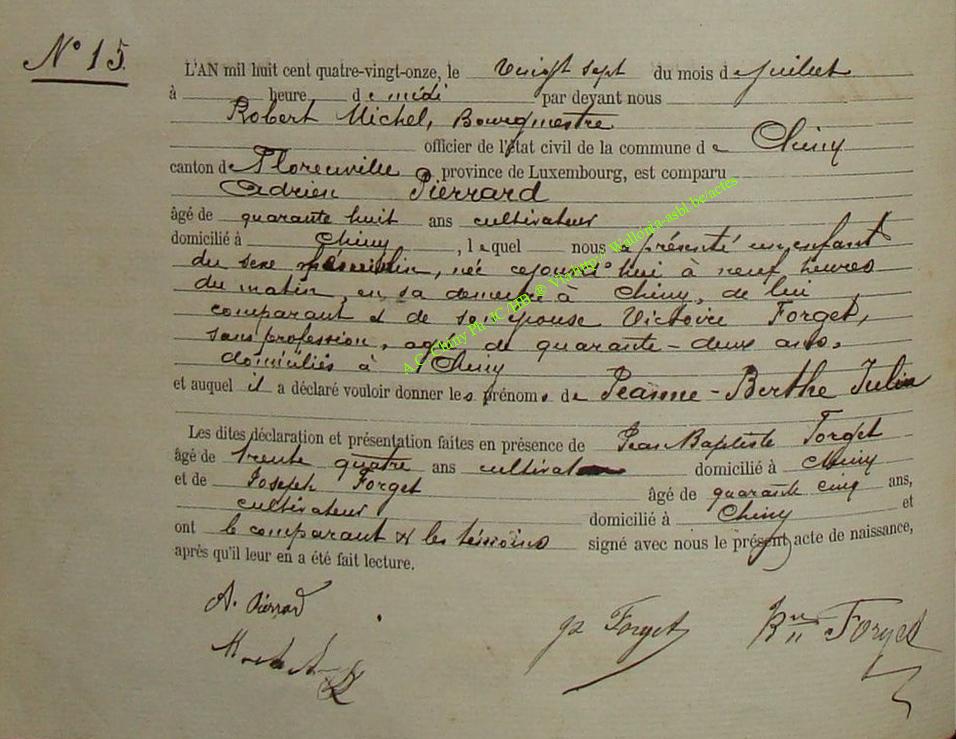 N° 15.
L'AN mil huit cent quatre-vingt-onze, le Vingt sept du mois de Juillet
à heure de midi par devant nous
Robert Michel, Bourgmestre
officier de l'état civil de la commune de Chiny
canton de Florenville province de Luxembourg, est comparu
Adrien Pierrard
âgé de quarante huit ans cultivateur
domicilié à Chiny, lequel nous a présenté un enfant
du sexe, née cejourd'hui à neuf heures
du matin, en sa demeure à Chiny, de lui
comparant & de son épouse Victoire Forget,
sans profession, agée de quarante-deux ans,
domiciliés à Chiny
et auquel il a déclaré vouloir donner les prénoms de Jeanne-Berthe
Les dites déclaration et présentation faites en présence de Jean Baptiste Forget
âgé de trente quatre ans domicilié à Chiny
et de Joseph Forget âgé de quarante cinq ans,
cultivateur domicilié à Chiny et
ont le comparant & les témoins signé avec nous le présent acte de naissance,
après qu'il leur en a été fait lecture.
A. Pierrard
Forget
Forget
Wallonia-asbl.be/actes